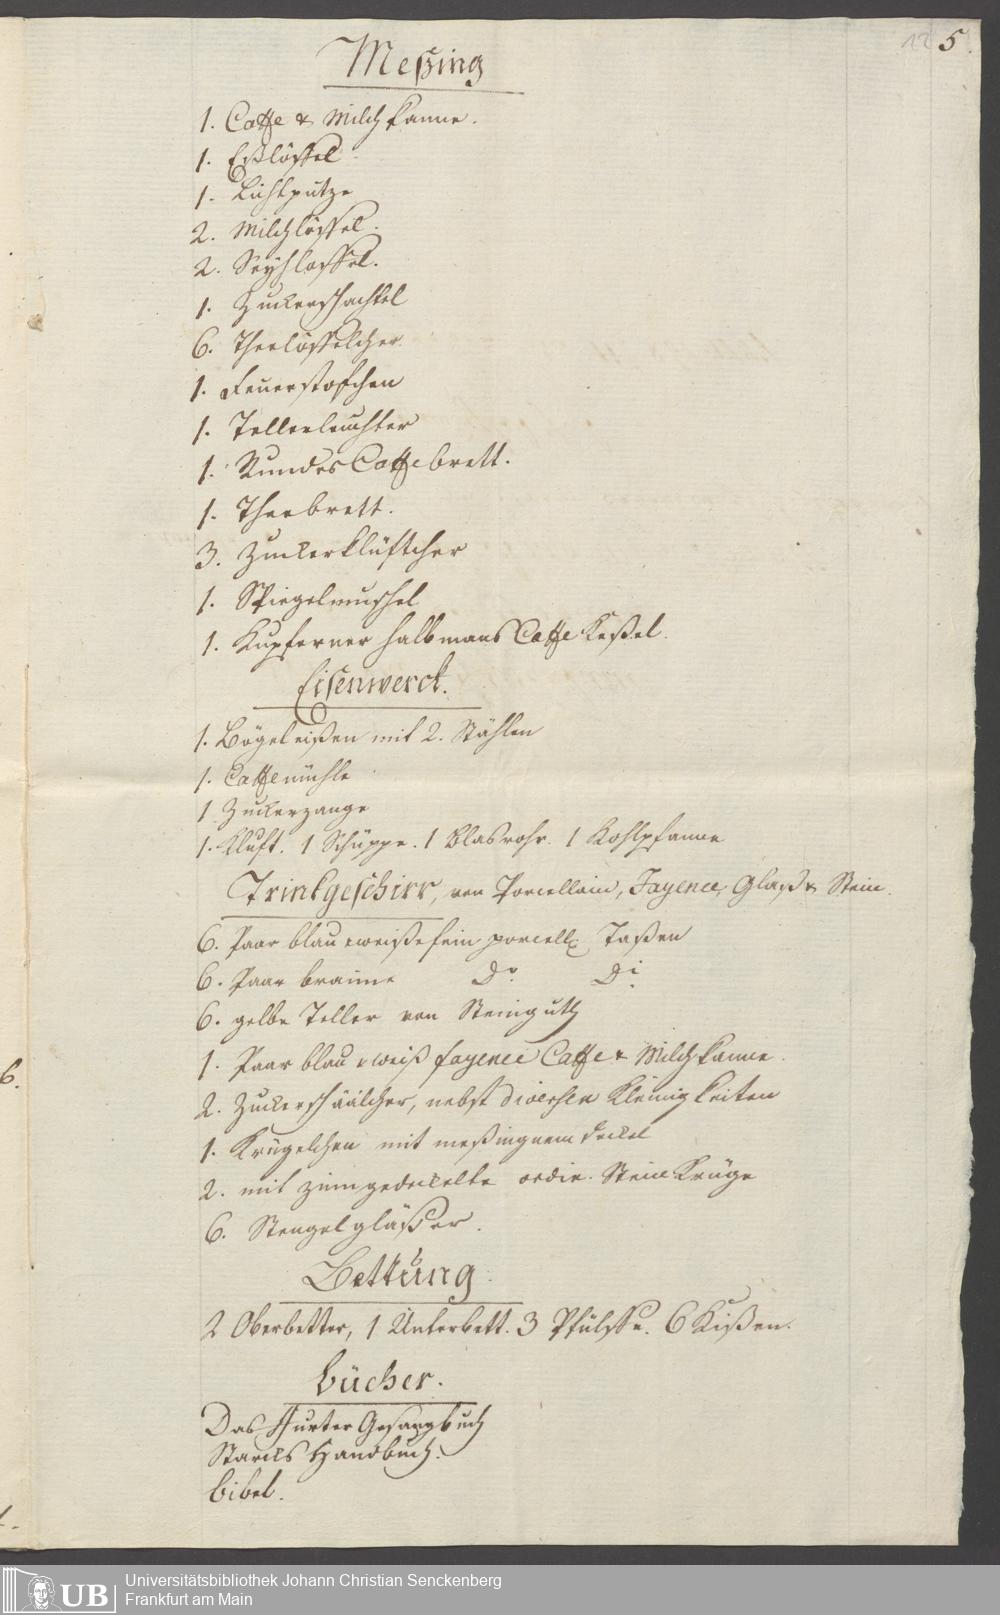 12 5
Meßing
1. Caffe & Milchkanne.
1. Eßlöffel.
1. Lichtputze
2. Milchlöffel.
2. Seyhloffel.
1. Zuckerschachtel
6. Theelöffelcher
1. Feuerstofchen
1. Tellerleuchter
1. Rundes Caffebrett.
1. Theebrett.
3. Zuckerklüftcher
1. Spiegelmuschel
1. Kupferner halbmans Caffe Keßel.
Eisenwerck.
1. Bögeleißen mit 2. Stählen
1. Caffemühle
1 Zuckerzange
1. Kluft. 1 Schüppe. 1 Blasrohr. 1 Kohlpfanne
Trinkgeschirr, von Porcellain, Fayence, Glaß & Stein.
6. Paar blau & weiße fein porcell. Taßen
6. Paar braune Do. Di.
6. gelbe Teller von Steinguth
1. Paar blau & weiß fayence Caffe & Milchkanne.
2. Zuckerschäälcher, nebst diversen Kleinigkeiten
1. Krügelchen mit meßingnem Deckel
2. mit zinn gedeckelte ordin. Stein Krüge
6. Stengelgläßer.
6.
Bettung.
2 Oberbetter, 1 Unterbett. 3 Pfülffe. 6 Kißen.
bücher.
Das Ffurter Gesangbuch
Starcks Handbuch.
bibel.
UB Universitätsbibliothek Johann Christian Senckenberg
Frankfurt am Main